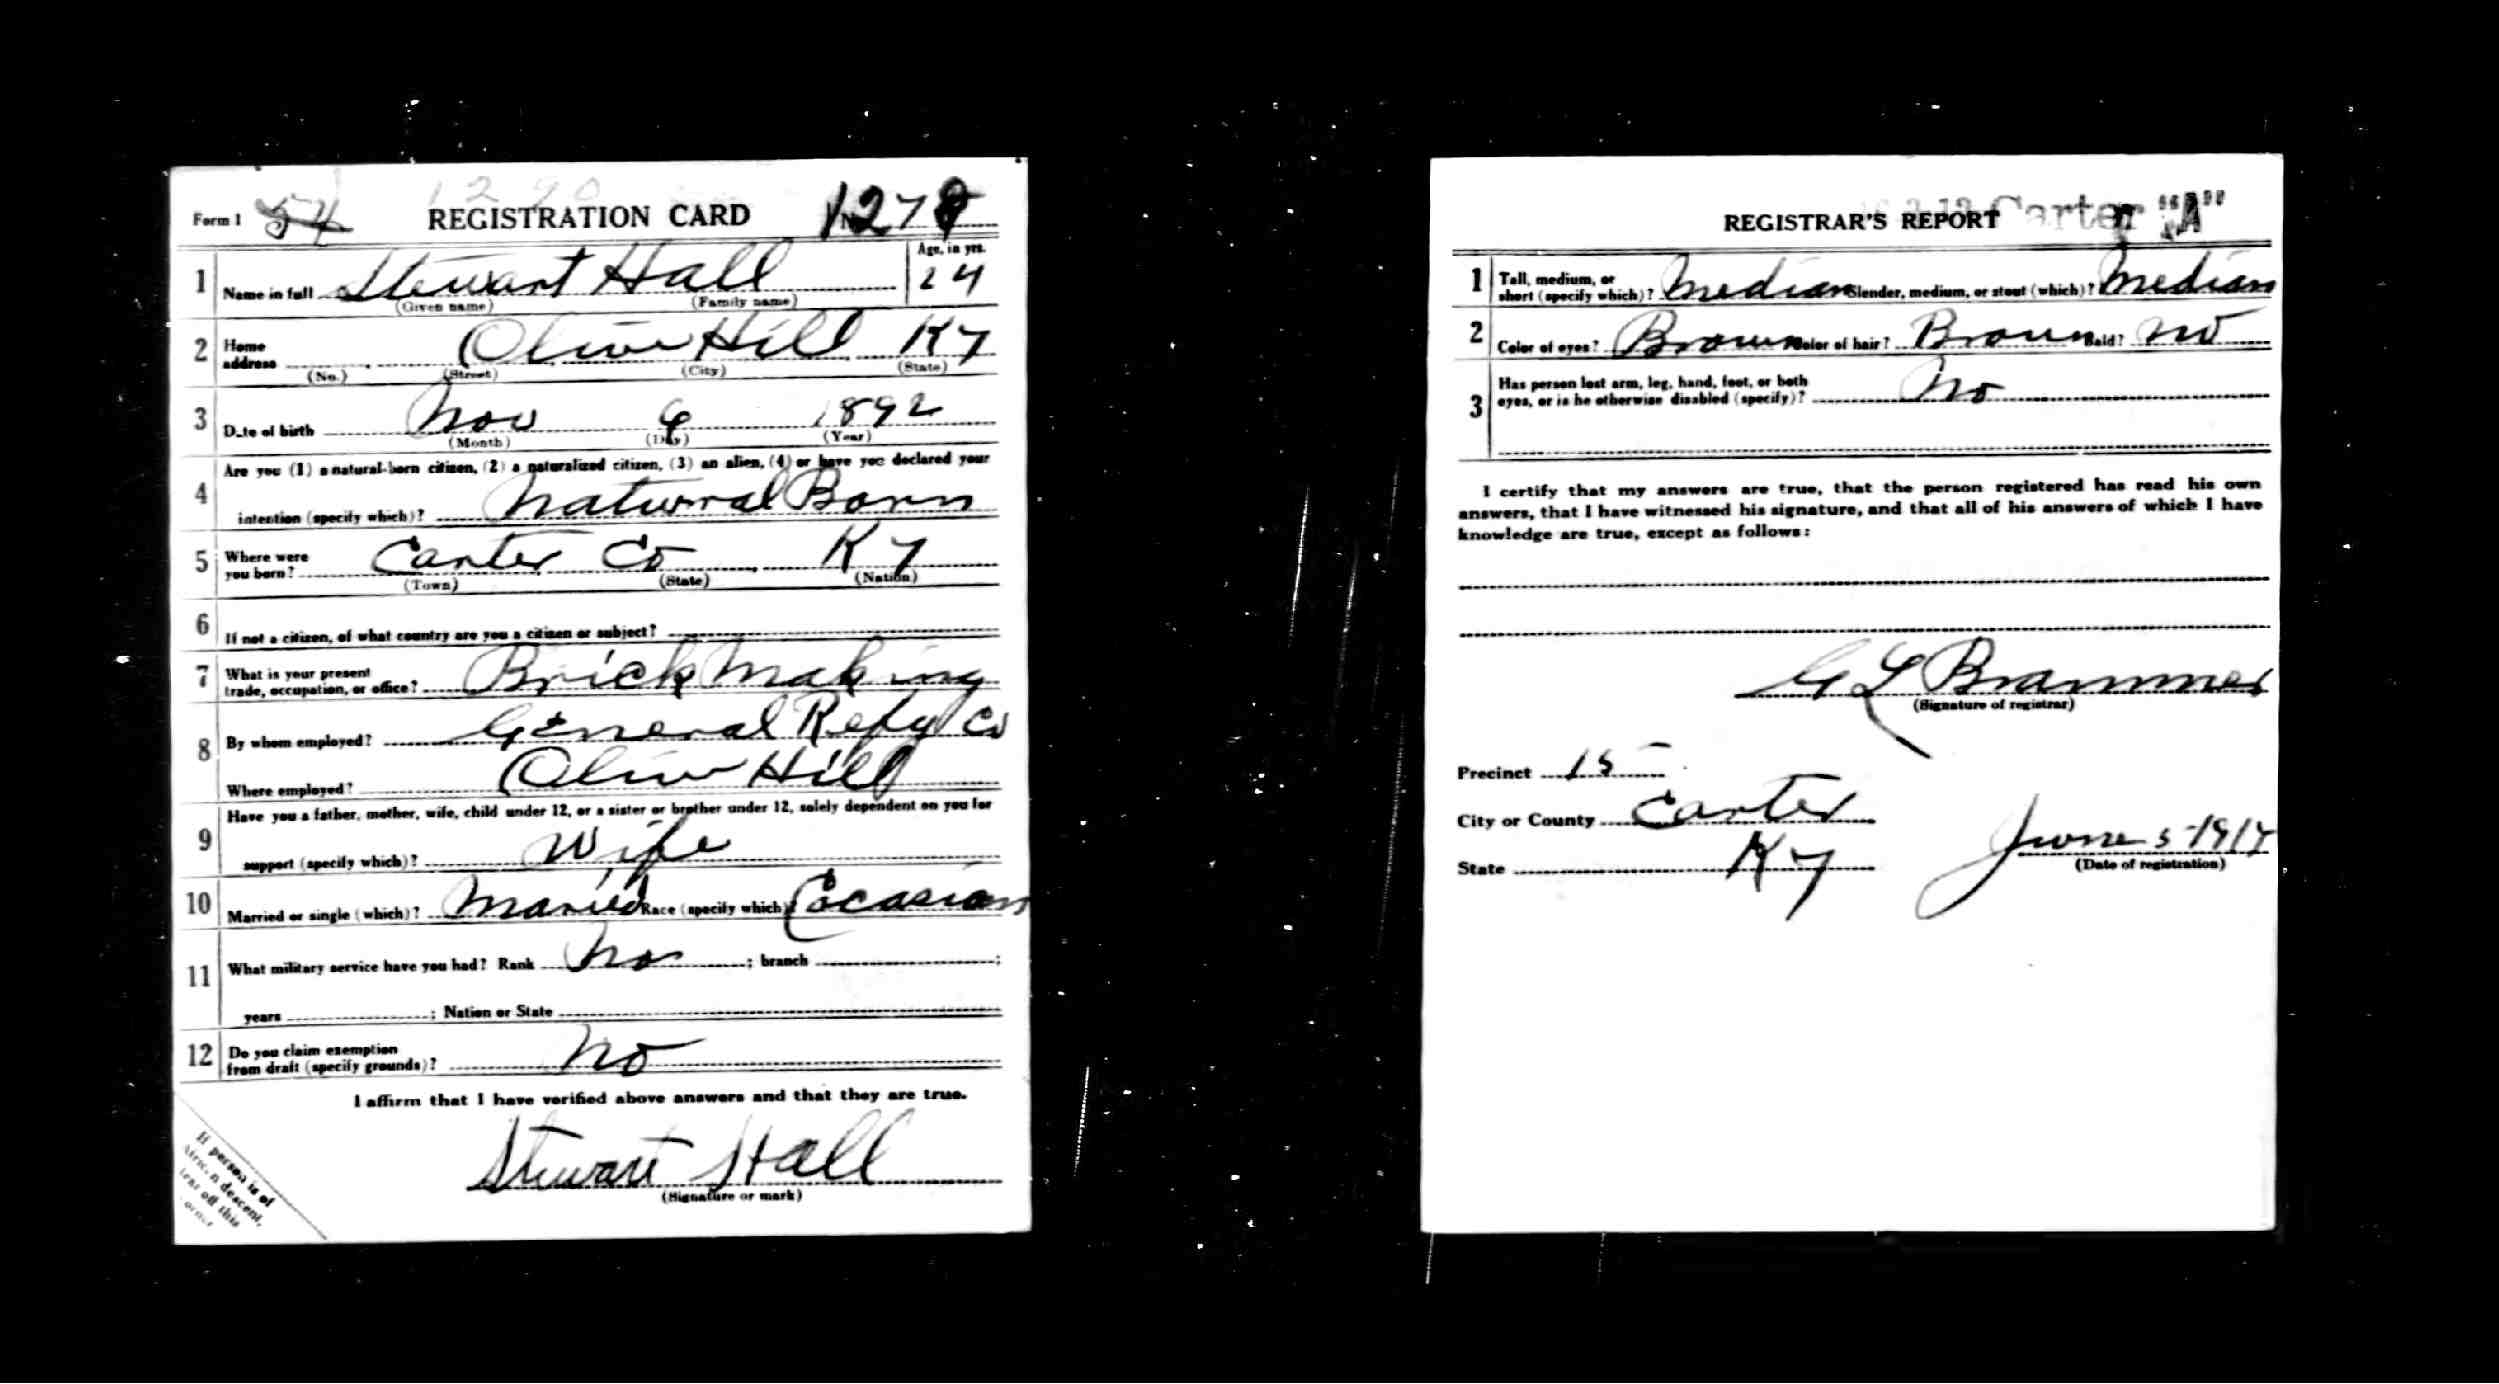 1290
Form 1 54 REGISTRATION CARD No. 1278
Age, in yrs.
1 Name in full Stewart Hall 24
(Given name) (Family name)
2 Home address Olive Hill Ky
(No.) (Street) (City) (State)
3 Date of birth Nov 6 1892
(Month) (Day) (Year)
Are you (1) a natural-born citizen, (2) a naturalized citizen, (3) an alien, (4) or have you declared your
4 intention (specify which)? Natural Born
5 Where were you born? Carter Co Ky
(Town) (State) (Nation)
6 If not a citizen, of what country are you a citizen or subject?
7 What is your present trade, occupation, or office? Brick Making
8 By whom employed? General Refy Co
Where employed? Olive Hill
Have you a father, mother, wife, child under 12, or a sister or brother under 12, solely dependent on you for
9 support (specify which)? Wife
10 Married or single (which)? Maried Race (specify which) Cocasian
11 What military service have you had? Rank No ; branch ;
years ; Nation or State
12 Do you claim exemption from draft (specify grounds)? No
I affirm that I have verified above answers and that they are true.
Stewart Hall
(Signature or mark)
If person is of
descent,
off this
corner
REGISTRAR'S REPORT Carter "A"
1 Tall, medium, or short (specify which)? Median Slender, medium, or stout (which)? Median
2 Color of eyes? Brown Color of hair? Brown Bald? No
3 Has person lost arm, leg, hand, foot, or both eyes, or is he otherwise disabled (specify)? No
I certify that my answers are true, that the person registered has read his own
answers, that I have witnessed his signature, and that all of his answers of which I have
knowledge are true, except as follows:
G L Brammer
(Signature of registrar)
Precinct 15
City or County Carter
State Ky June 5-1917
(Date of registration)